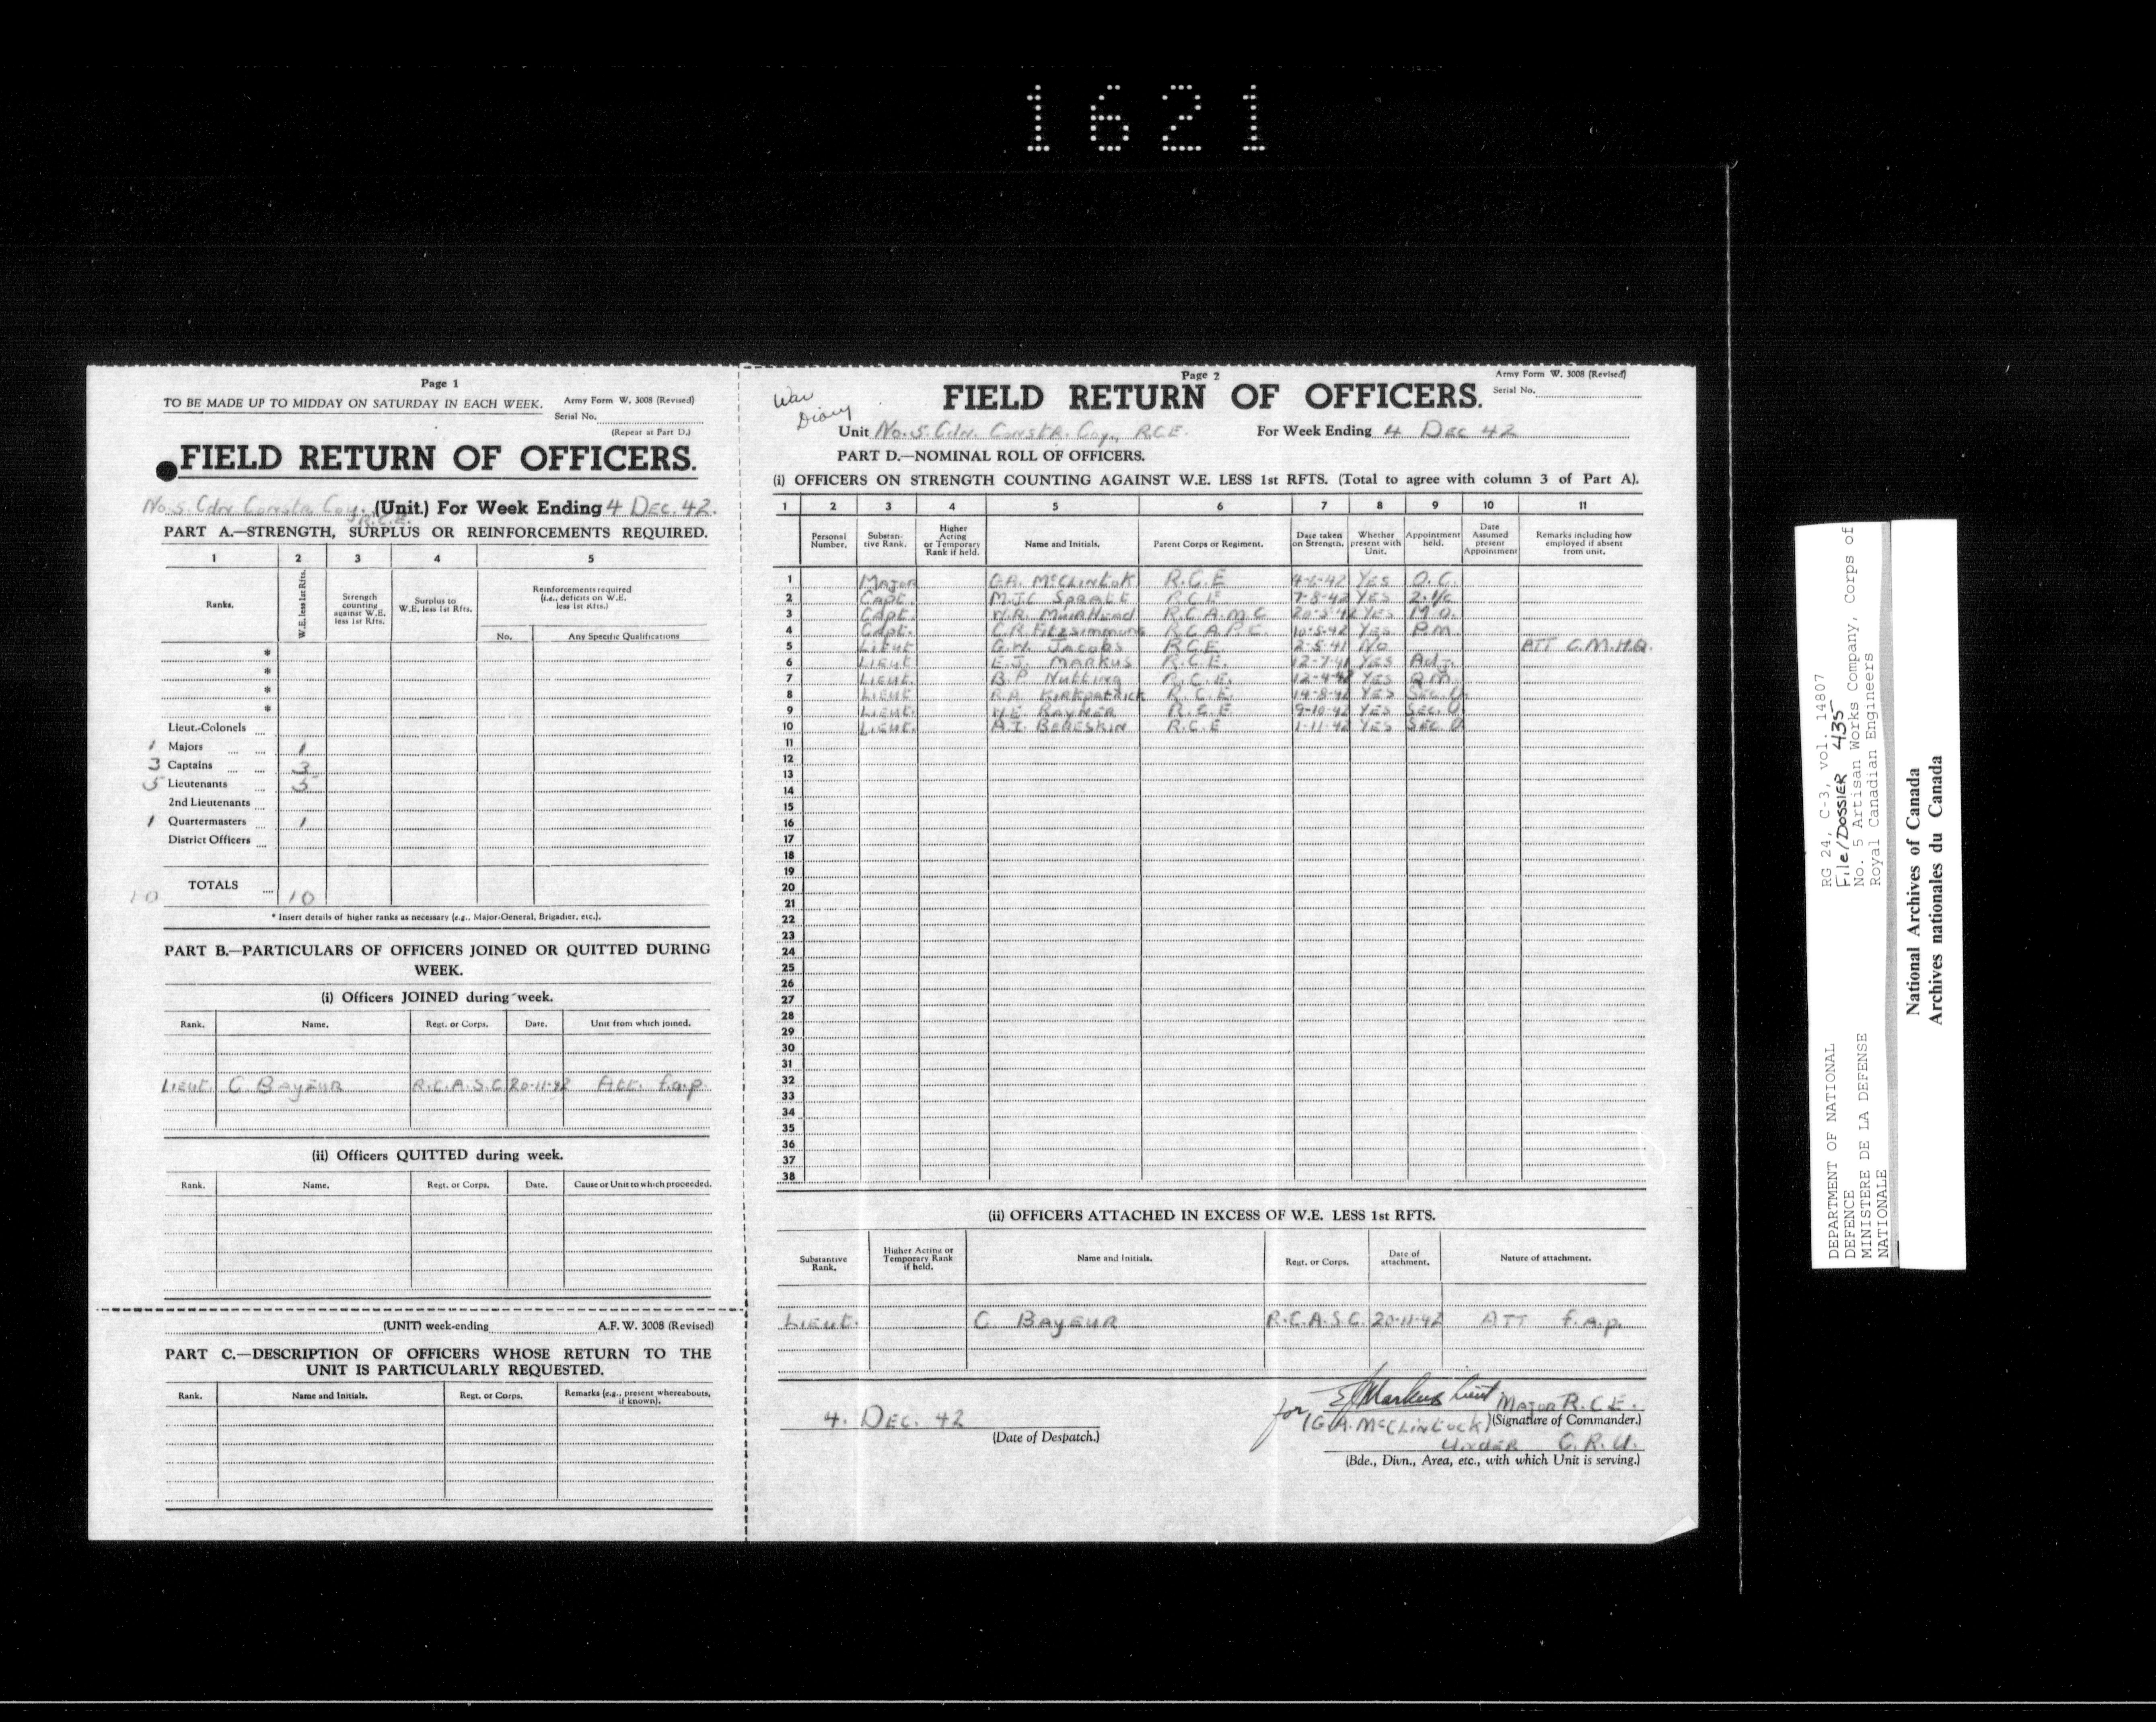 1621
Page 1
TO BE MADE UP TO MIDDAY ON SATURDAY IN EACH WEEK. Army Form W. 3008 (Revised)
Serial No.
(Repeat at Part D.)
FIELD RETURN OF OFFICERS.
No. 5 Cdn Constr. Coy. (Unit.) For Week Ending 4 Dec. 42.
R.C.E.
PART A.—STRENGTH, SURPLUS OR REINFORCEMENTS REQUIRED.
1 2 3 4 5
Ranks. W.E. less 1st Rfts. Strength counting against W.E. less 1st Rfts. Surplus to W.E. less 1st Rfts. Reinforcements required (i.e., deficits on W.E. less 1st Rfts.)
No. Any Specific Qualifications
*
*
*
*
Lieut.-Colonels
1 Majors 1
3 Captains 3
5 Lieutenants 5
2nd Lieutenants
1 Quartermasters 1
District Officers
10 TOTALS 10
* Insert details of higher ranks as necessary (e.g., Major-General, Brigadier, etc.).
PART B.—PARTICULARS OF OFFICERS JOINED OR QUITTED DURING
WEEK.
(i) Officers JOINED during week.
Rank. Name. Regt. or Corps. Date. Unit from which joined.
Lieut. C Bayeur R.C.A.S.C 20-11-42 Att. f.a.p.
(ii) Officers QUITTED during week.
Rank. Name. Regt. or Corps. Date. Cause or Unit to which proceeded.
(UNIT) week-ending A.F.W. 3008 (Revised)
PART C.—DESCRIPTION OF OFFICERS WHOSE RETURN TO THE
UNIT IS PARTICULARLY REQUESTED.
Rank. Name and Initials. Regt. or Corps. Remarks (e.g., present whereabouts, if known).
Page 2
Army Form W. 3008 (Revised)
War Diary
FIELD RETURN OF OFFICERS. Serial No.
Unit No. 5 Cdn. Constr. Coy., R.C.E. For Week Ending 4 Dec 42
PART D.—NOMINAL ROLL OF OFFICERS.
(i) OFFICERS ON STRENGTH COUNTING AGAINST W.E. LESS 1st RFTS. (Total to agree with column 3 of Part A).
1 2 3 4 5 6 7 8 9 10 11
Personal Number. Substantive Rank. Higher Acting or Temporary Rank if held. Name and Initials. Parent Corps or Regiment. Date taken on Strength. Whether present with Unit. Appointment held. Date Assumed present Appointment Remarks including how employed if absent from unit.
1 Major G.A. McClintok R.C.E 4-6-42 Yes O.C.
2 Capt. M.J.C Spratt R.C.E 7-8-42 Yes 2.i/c
3 Capt. W.R. Muirhead R.C.A.M.C 20-5-42 Yes M.O.
4 Capt. C.R Fitzsimmons R.C.A.P.C. 10-5-42 Yes P.M
5 Lieut G.W. Jacobs R.C.E 2-5-41 No ATT C.M.H.Q.
6 Lieut E.J. Markus R.C.E. 12-7-41 Yes Adj.
7 Lieut. B.P Nutting R.C.E. 12-4-42 Yes Q.M.
8 Lieut R.A. Kirkpatrick R.C.E. 14-8-42 Yes Sec. O.
9 Lieut. H.E. Rayner R.C.E 9-10-42 Yes Sec. O.
10 Lieut. A.I. Bereskin R.C.E 1-11-42 Yes Sec O
11
12
13
14
15
16
17
18
19
20
21
22
23
24
25
26
27
28
29
30
31
32
33
34
35
36
37
38
(ii) OFFICERS ATTACHED IN EXCESS OF W.E. LESS 1st RFTS.
Substantive Rank. Higher Acting or Temporary Rank if held. Name and Initials. Regt. or Corps. Date of attachment. Nature of attachment.
Lieut. C. Bayeur R.C.A.S.C. 20-11-42 ATT f.a.p.
4. Dec. 42
(Date of Despatch.)
for EJMarkus Lieut Major R.C.E.
(G.A. McClintock) (Signature of Commander.)
Under C.R.U.
(Bde., Divn., Area, etc., with which Unit is serving.)
DEPARTMENT OF NATIONAL
DEFENCE
MINISTERE DE LA DEFENSE
NATIONALE
RG 24, C-3, vol. 14807
File/DOSSIER 435
No. 5 Artisan Works Company, Corps of
Royal Canadian Engineers
National Archives of Canada
Archives nationales du Canada